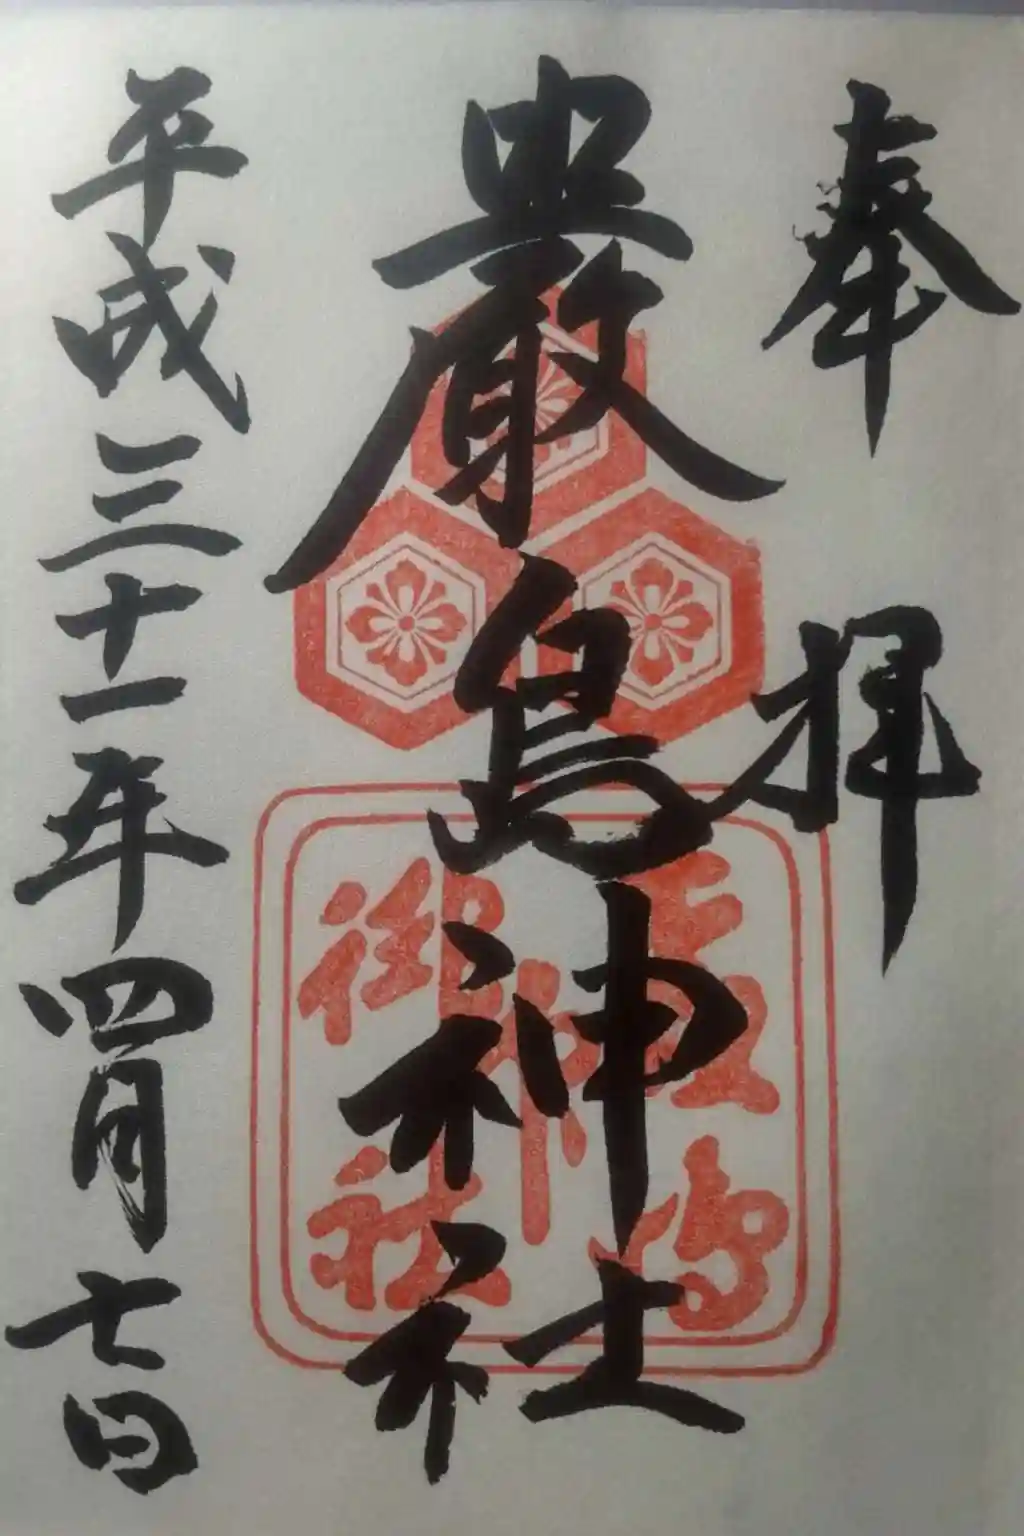 奉拝
厳島神社
平成三十一年四月七日
厳島
御神社